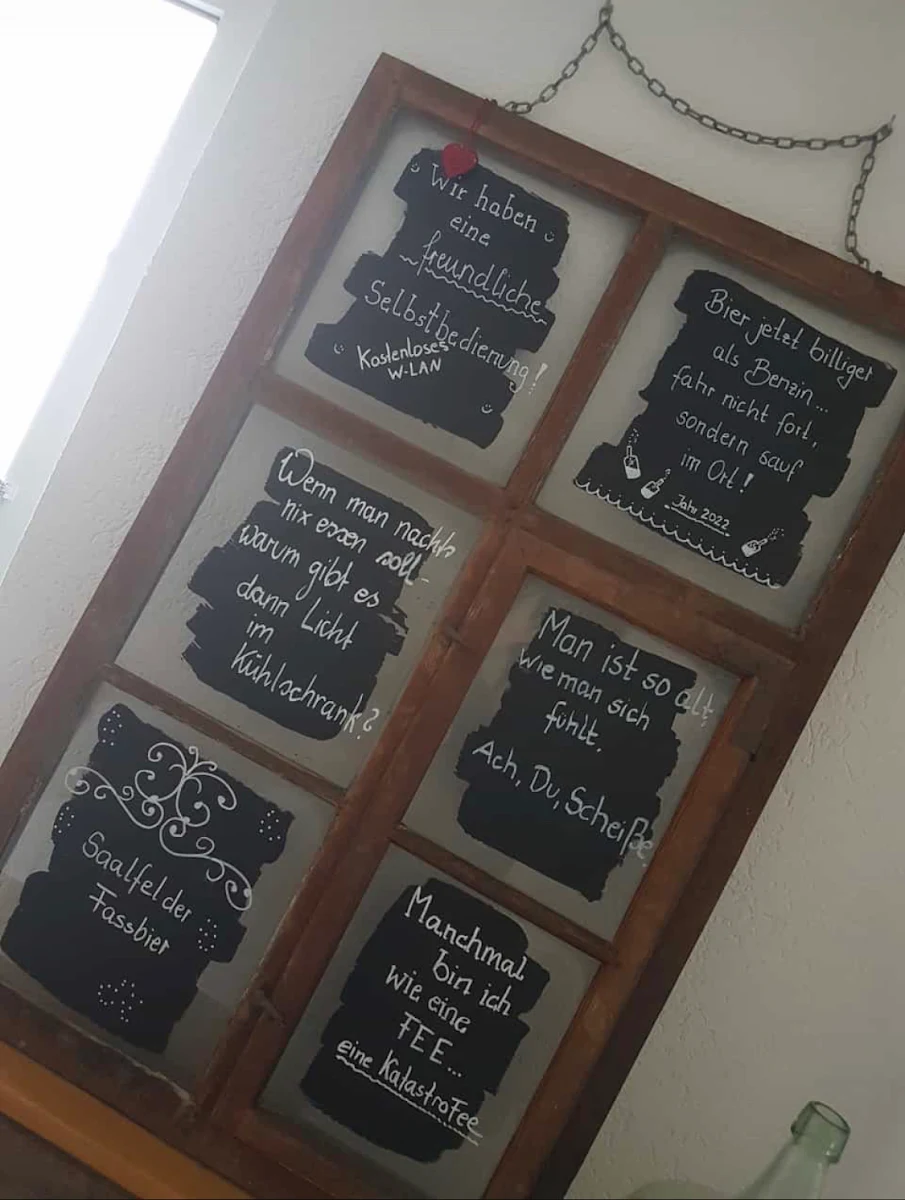 Wir haben
eine
freundliche
Selbstbedienung!
Kostenloses
W-LAN
Bier jetzt billiger
als Benzin...
fahr nicht fort,
sondern sauf
im Ort!
Jahr 2022
Wenn man nachts
nix essen soll-
warum gibt es
dann Licht
im
Kühlschrank?
Man ist so alt,
wie man sich
fühlt.
Ach, Du, Scheiße
Saalfelder
Fassbier
Manchmal
bin ich
wie eine
FEE...
eine KatastroFee